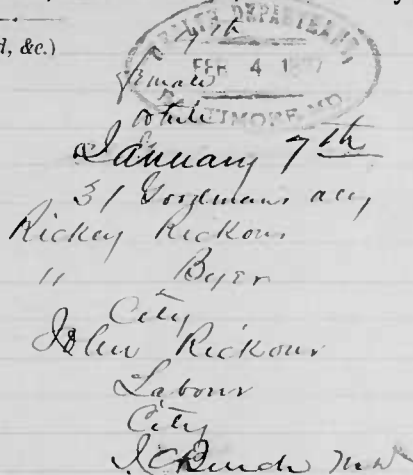 d, &c.)
HEALTH DEPARTMENT
7th
FEB 4
BALTIMORE, MD.
female
White
January 7th
31 Goodmans ally
Rickey Rickour
" Byer
City
John Rickour
Labour
City